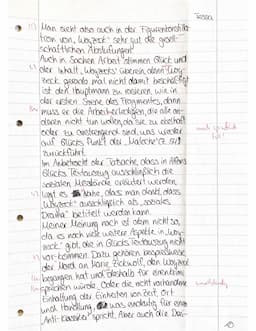 Tessa
Man sieht also auch in der Figurenkonstella-
tion von „Woyzeck" sehr gut die gesell-
schaftlichen Abstufungen.
Auch in Sachen Arbeit stimmen Glück und
der Inhalt „Woyzecks" überein, denn „Woy-
zeck gerade mal nicht damit beschäftigt
ist den Hauptmann zu rasieren, wie in
der ersten Szene des Fragmentes, dann
muss er die Arbeit erledigen, die alle an-
deren nicht tun wollen, da sie zu ekelhaft
oder zu anstrengend sind, was wieder
auf Glücks Punkt der
zurückführt.
Im Anbetracht der Tatsache, dass in Alfons
Glücks Textauszug ausschließlich die
sozialen Missstände erläutert werden
liegt es nahe, dass man denkt, dass
„Woyzeck" ausschließlich als „soziales
Drama" betitelt werden kann.
Meiner Meinung nach ist dem nicht so,
da es noch viele weitere Aspekte in „Woy-
zeck" gibt, die in Glücks Textauszug nicht
vorkommen. Dazu gehören beispielsweise
der Mord an Marie Zickwolf, den Woyzeck
begangen hat und deshalb für
sprechen würde. Oder die nicht vorhandene
Einhaltung der Einheiten von Zeit, Ort
und Handlung, was eindeutig für eine
„Anti-Klassiker" spricht. Aber auch die Dar-